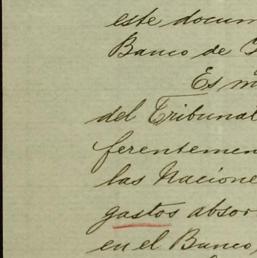 este docum
Banco de
Es m
del Tribunal
ferentemen
las Nacione
gastos absor
en el Banco,